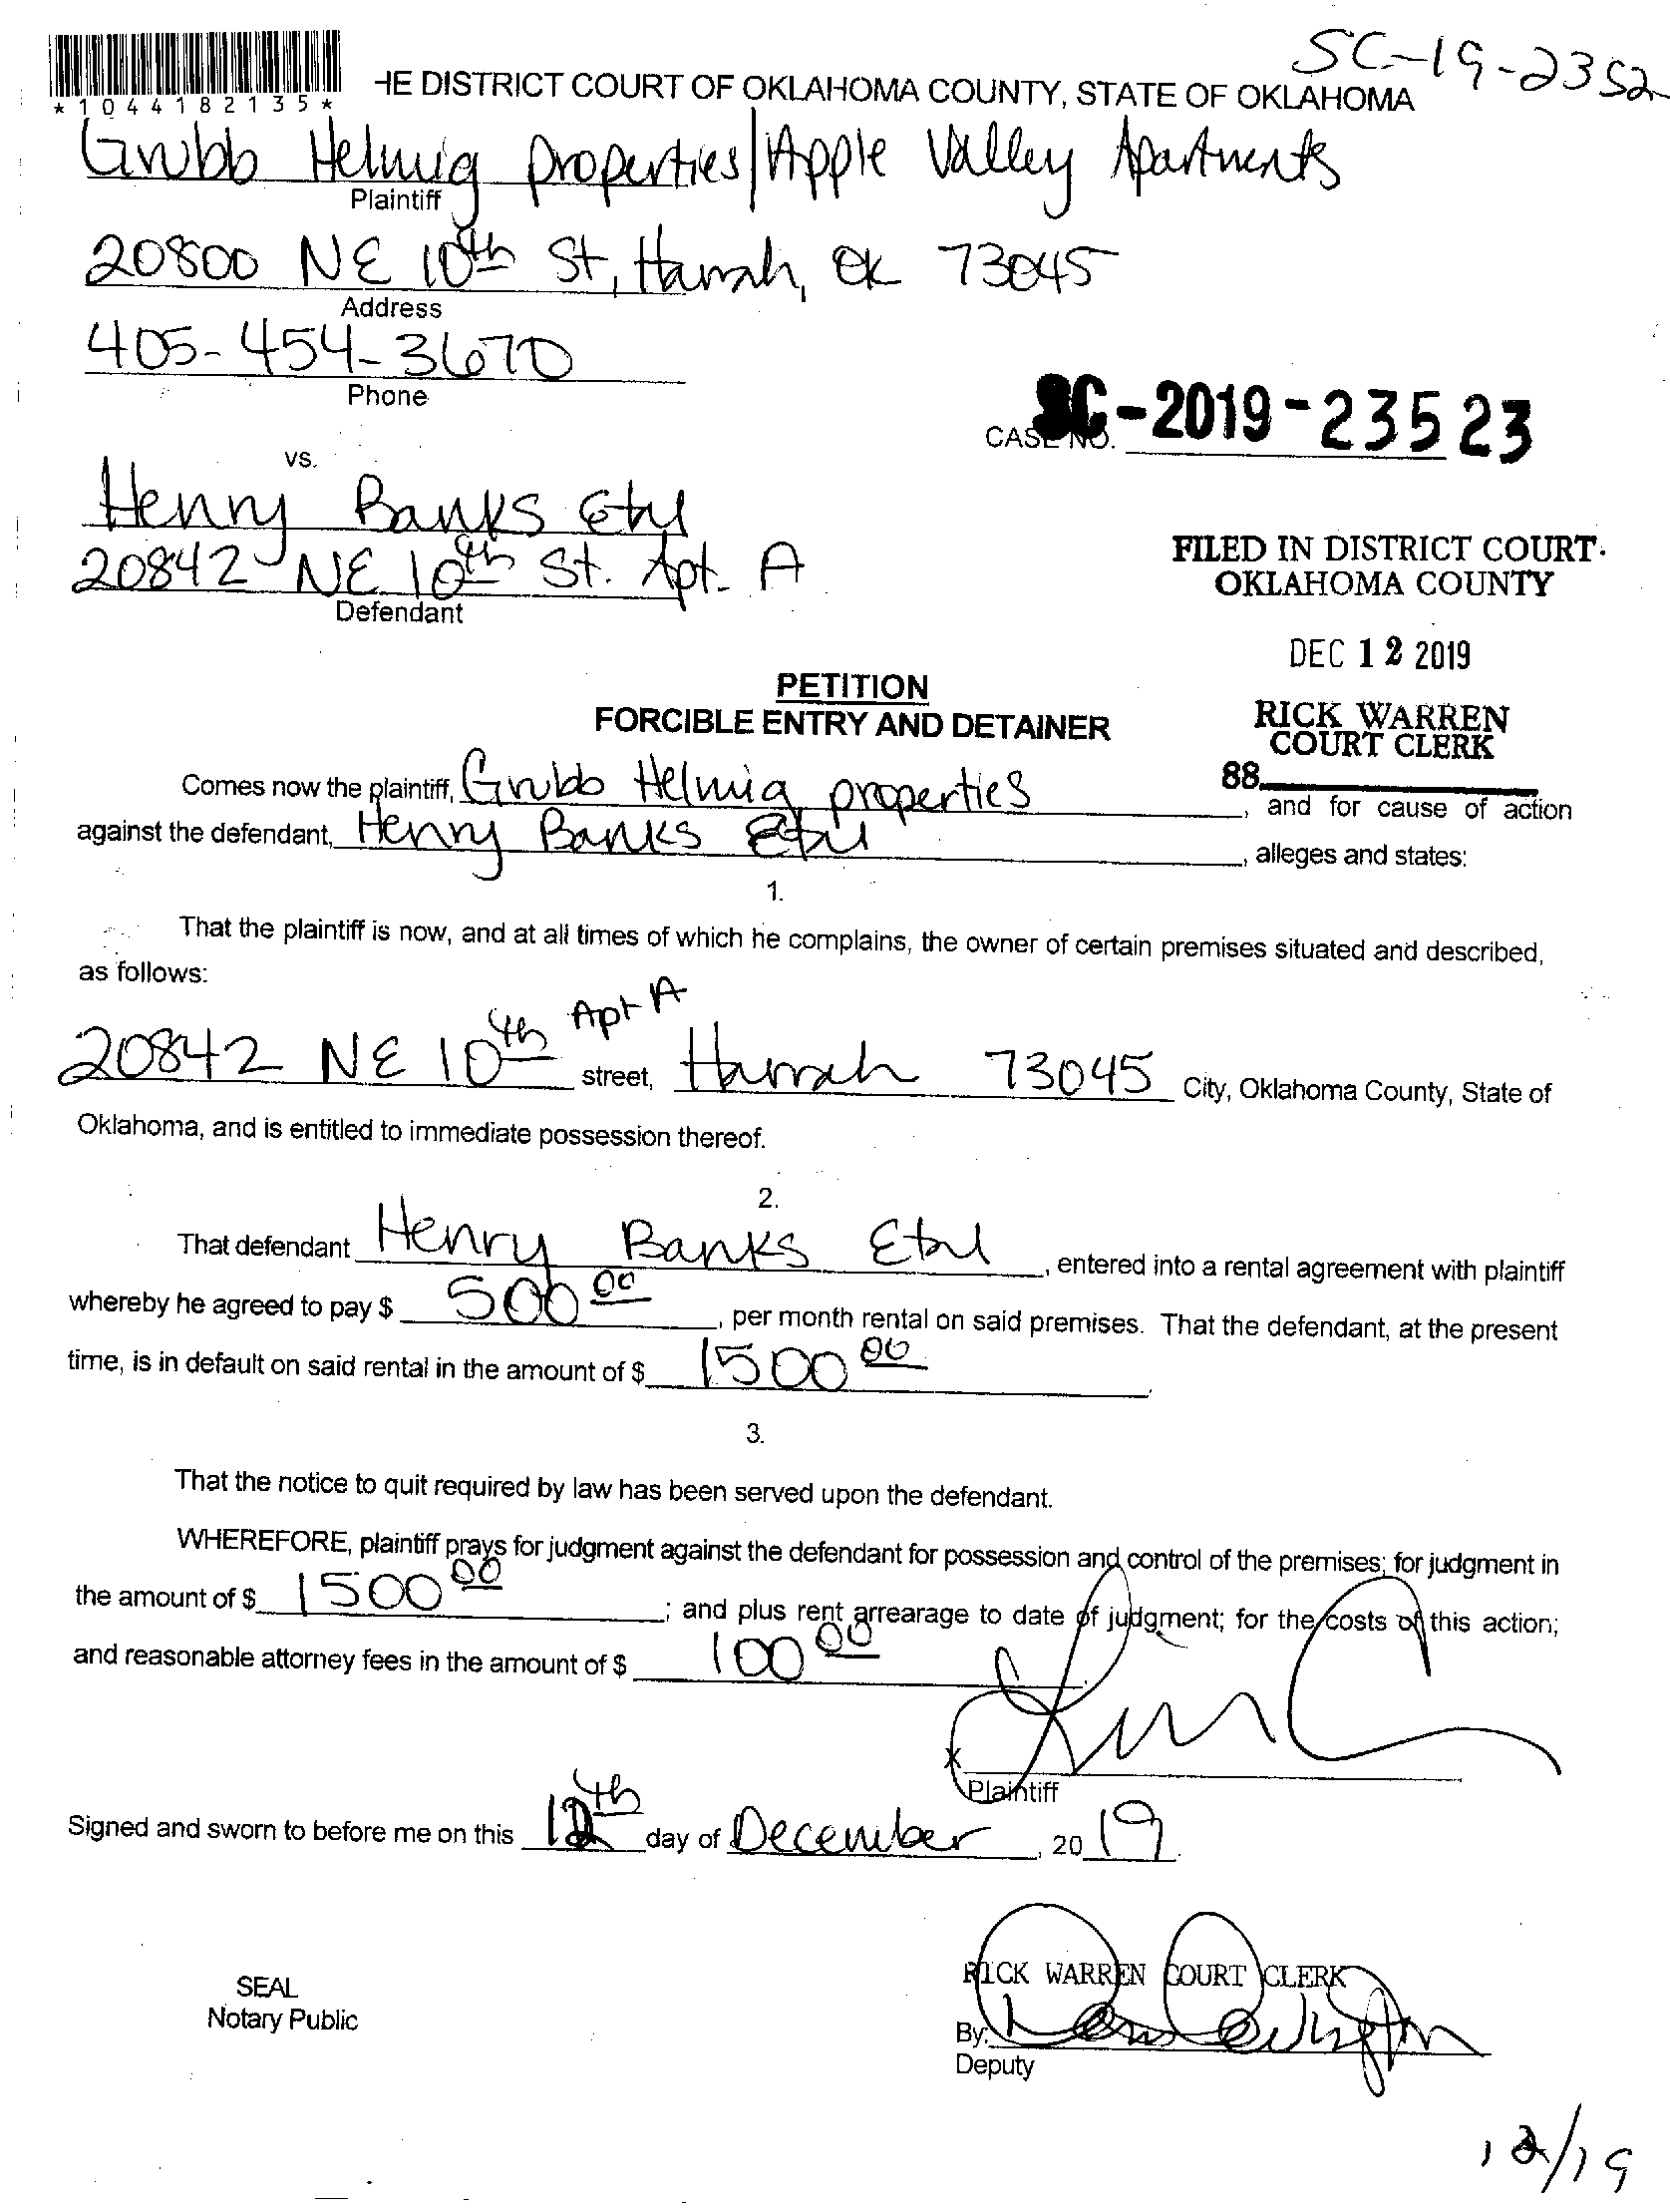 SC-19-2352
*1044182135*
HE DISTRICT COURT OF OKLAHOMA COUNTY, STATE OF OKLAHOMA
Grubb Helmig properties/Apple Valley Apartments
Plaintiff
20800 NE 10th St, Harrah, OK 73045
Address
405-454-3670
Phone
CASE NO. SC-2019-23523
vs.
Henry Banks Etal
20842 NE 10th St. Apt. A
Defendant
FILED IN DISTRICT COURT
OKLAHOMA COUNTY
DEC 12 2019
RICK WARREN
COURT CLERK
88
PETITION
FORCIBLE ENTRY AND DETAINER
Comes now the plaintiff, Grubb Helmig properties, and for cause of action
against the defendant, Henry Banks Etal, alleges and states:
1.
That the plaintiff is now, and at all times of which he complains, the owner of certain premises situated and described,
as follows:
20842 NE 10th Apt A street, Harrah 73045 City, Oklahoma County, State of
Oklahoma, and is entitled to immediate possession thereof.
2.
That defendant Henry Banks Etal, entered into a rental agreement with plaintiff
whereby he agreed to pay $ 500 00, per month rental on said premises. That the defendant, at the present
time, is in default on said rental in the amount of $ 1500 00.
3.
That the notice to quit required by law has been served upon the defendant.
WHEREFORE, plaintiff prays for judgment against the defendant for possession and control of the premises; for judgment in
the amount of $ 1500 00; and plus rent arrearage to date of judgment; for the costs of this action;
and reasonable attorney fees in the amount of $ 100 00.
X
Plaintiff
Signed and sworn to before me on this 12th day of December, 20 19.
SEAL
Notary Public
RICK WARREN COURT CLERK
By:
Deputy
12/19